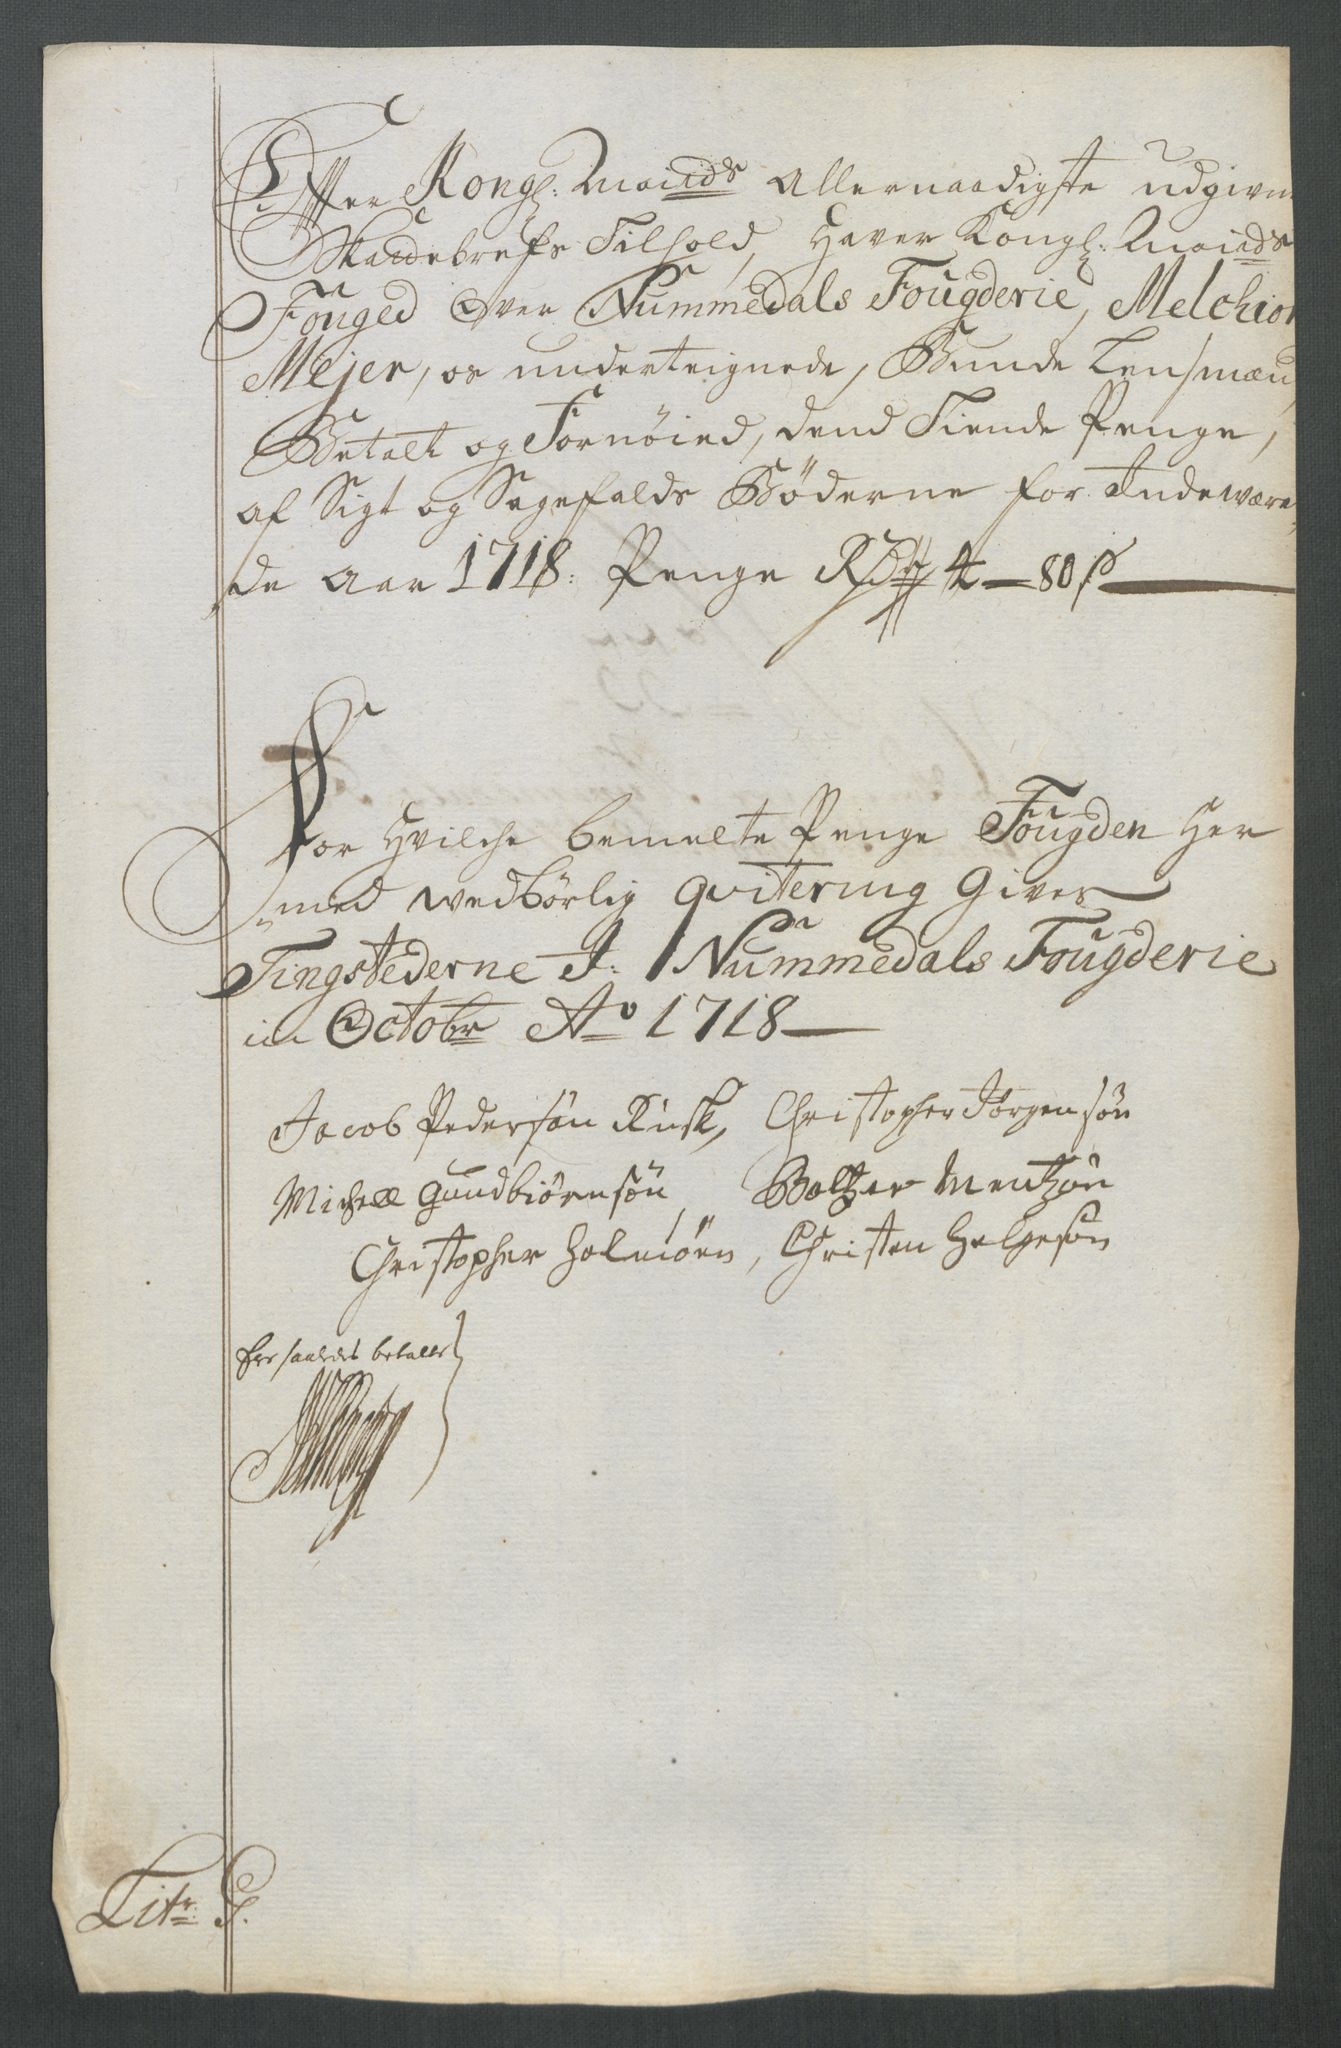 Effter Kongl: Maÿds Allernaadigste udgivne
Skattebrefs Tilhold, Haver Kongl: Maÿds
Fouged Over Nummedals Fougderie, Melchior
Mejer, os underteignede, Bunde Lensmænd,
Betalt og Fornöied, dend Tiende Penge,
af Sigt og Sagefalds Böderne for Indeværen-
de Aar 1718: Penge Rdr 4 — 80 s
For Hvilche bemelte Penge Fougden Her
med wedbörlig qvitering Gives
Tingstederne I: Nummedals Fougderie
in Octobr Ao 1718
Jacob Pedersön Rusk, Christopher Jörgensön
Michell Gundbiörnsön, Boltzer Mentzön
Christopher Holmöen, Christen Helgesön
Er saaledes betalt
Litr: